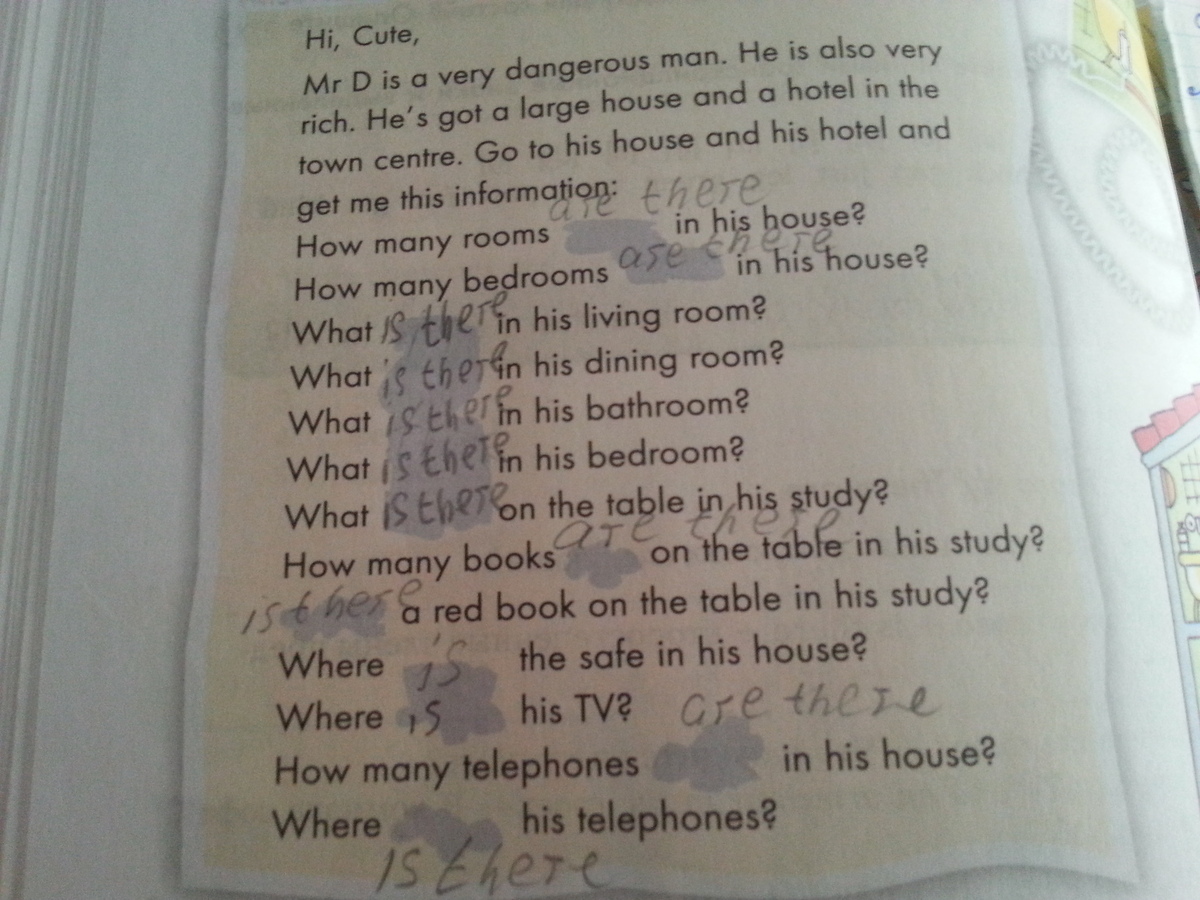 Hi, Cute,
Mr D is a very dangerous man. He is also very
rich. He's got a large house and a hotel in the
town centre. Go to his house and his hotel and
get me this information:
How many rooms are there in his house?
How many bedrooms are there in his house?
What is there in his living room?
What is there in his dining room?
What is there in his bathroom?
What is there in his bedroom?
What is there on the table in his study?
How many books are there on the table in his study?
is there a red book on the table in his study?
Where is the safe in his house?
Where is his TV?
How many telephones are there in his house?
Where is there his telephones?